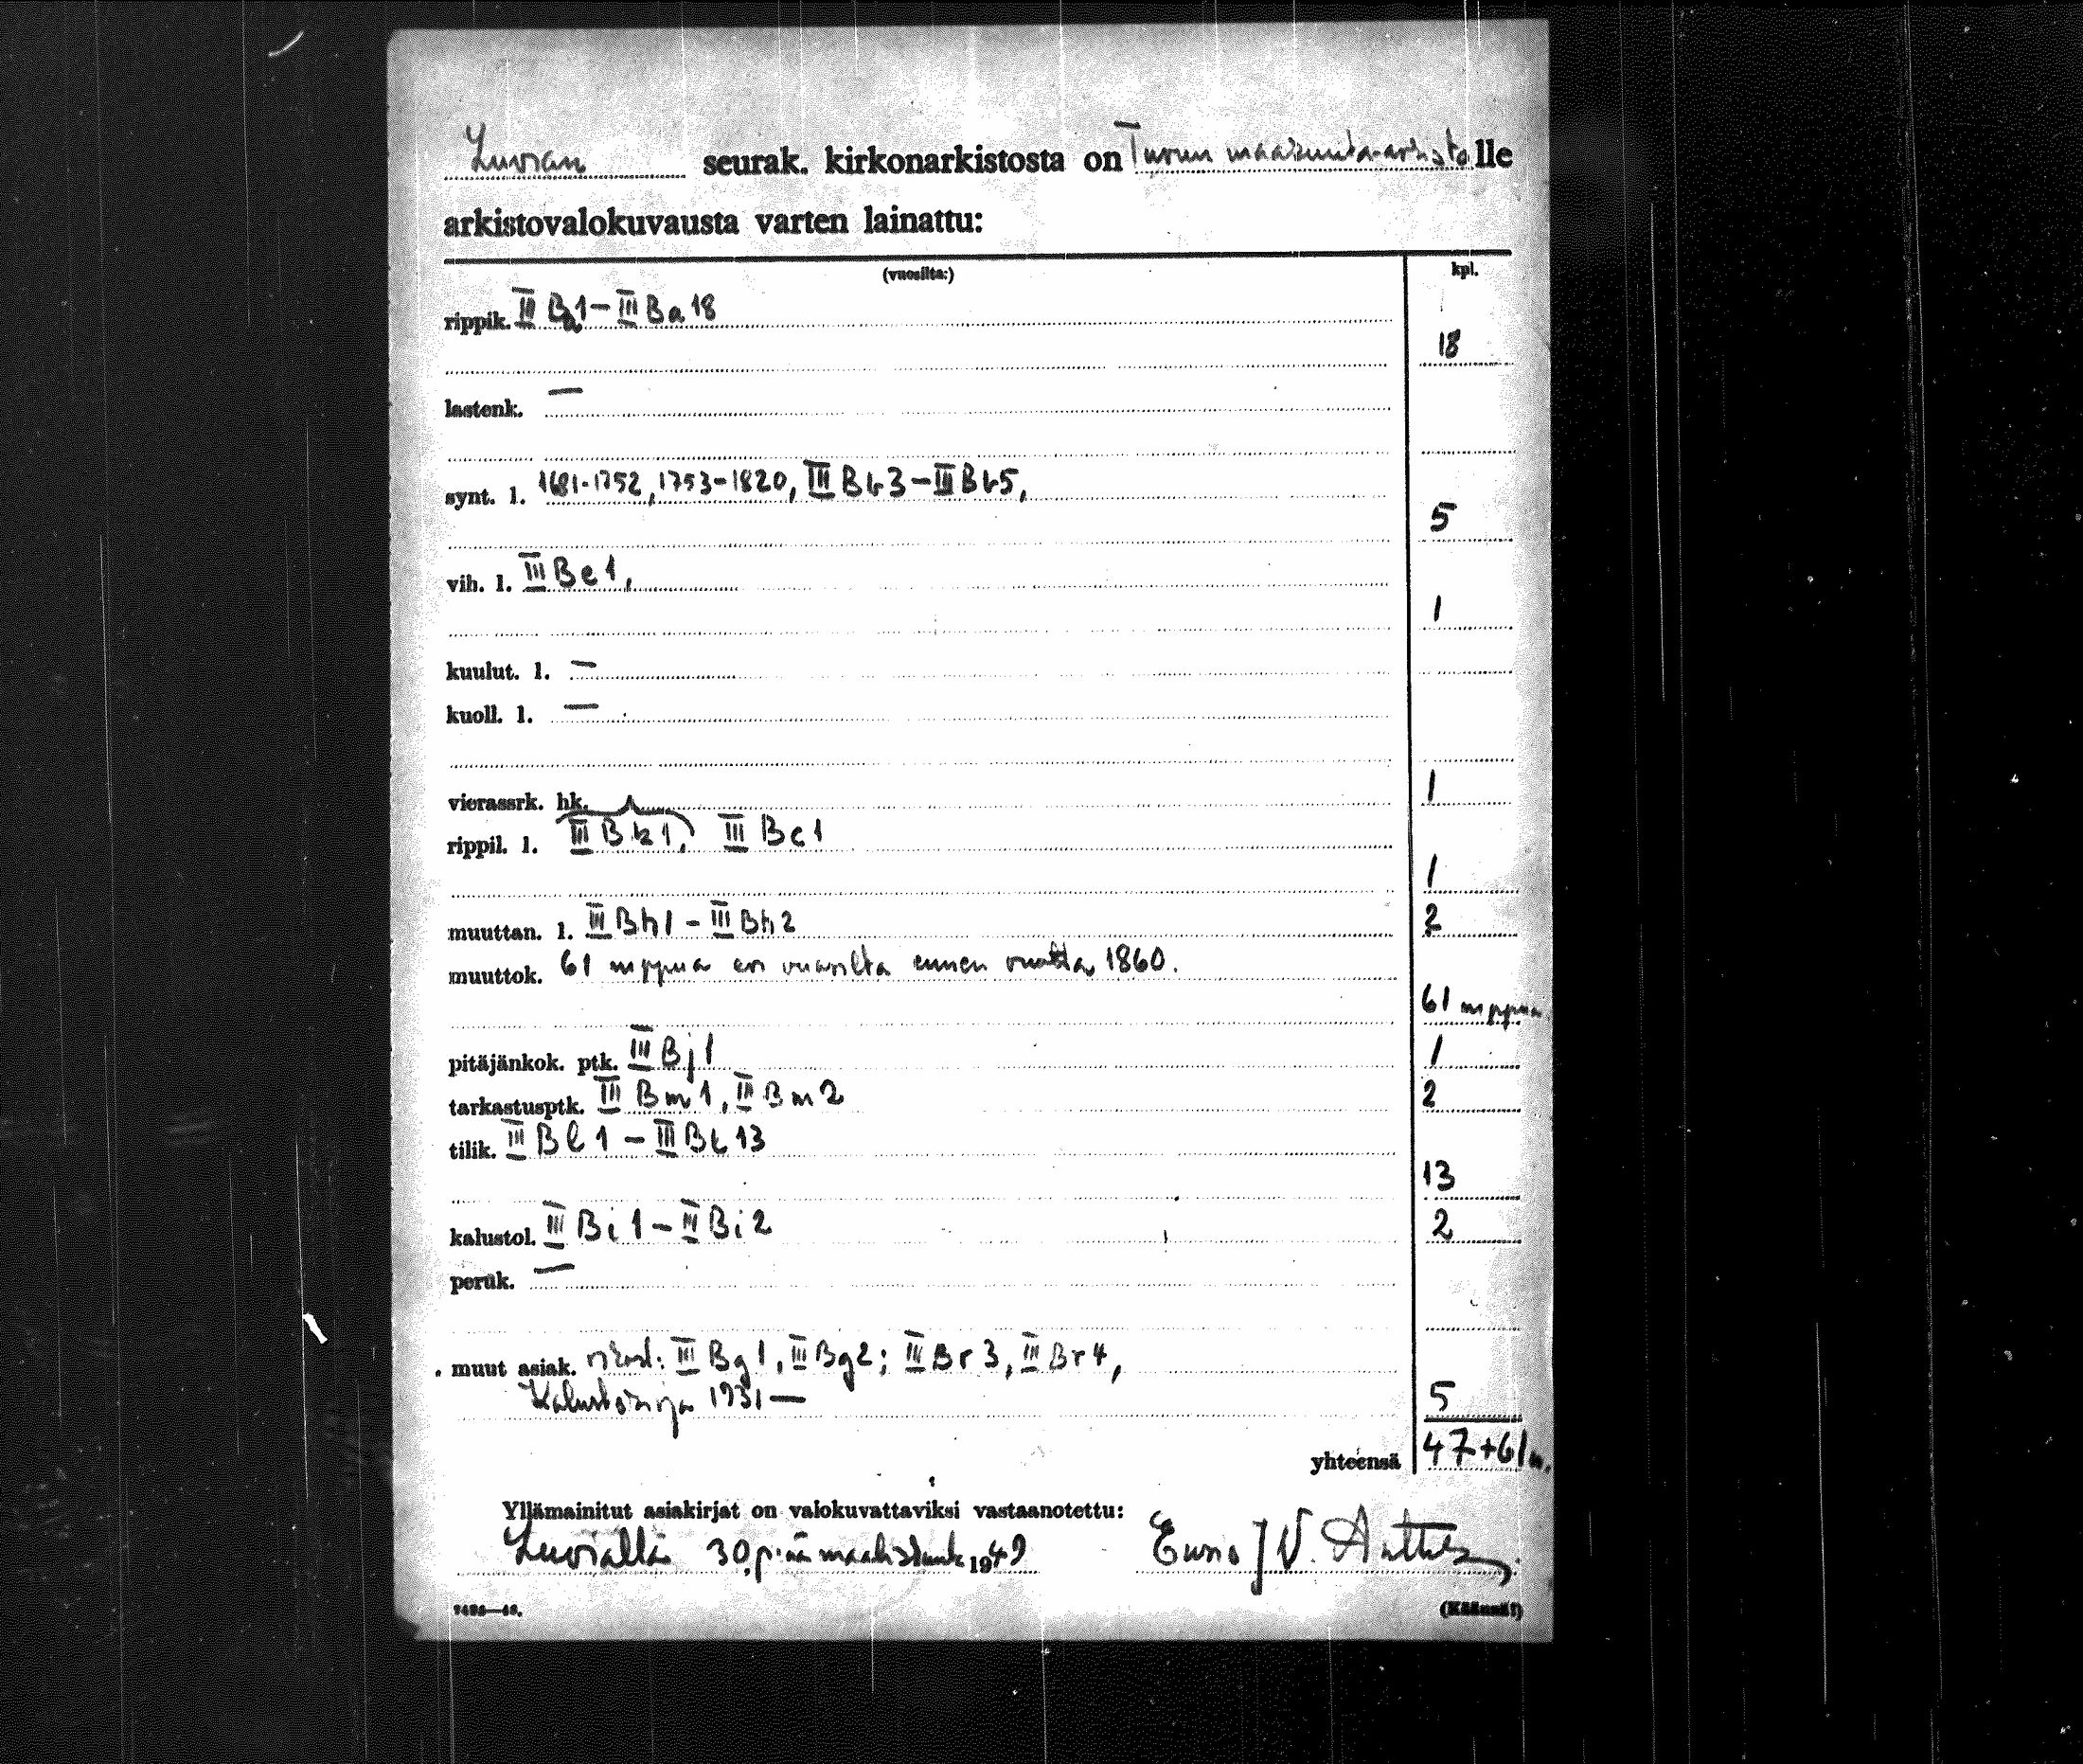 Luvian seurak. kirkonarkistosta on Turun maakunta-arkistolle
arkistovalokuvausta varten lainattu:
(vuosilta:) kpl.
rippik. III Ba1 – III Ba 18
18
lastenk. —
synt. l. 1681-1752, 1753-1820, III Bb3 – III Bb5,
5
vih. l. III Be1,
1
kuulut. l. —
kuoll. l. —
vierassrk. hk. 1
rippil. l. III Bk1, III Bc1
1
muuttan. l. III Bh1 - III Bh2 2
muuttok. 61 nippua eri vuosilta ennen vuotta 1860.
61 nippua
pitäjänkok. ptk. III Bj1 1
tarkastusptk. III Bm1, III Bm2 2
tilik. III Bl1 – III Bl13
13
kalustol. III Bi1 – III Bi2 2
peruk. —
muut asiak. III Bg1, III Bg2; III Br3, III Br4,
Kalustokirja 1931 — 5
yhteensä 47+61n.
Yllämainitut asiakirjat on valokuvattaviksi vastaanotettu:
Luvialla 30 p:nä maalisk. 1949 Euno J V.
(Käännä!)